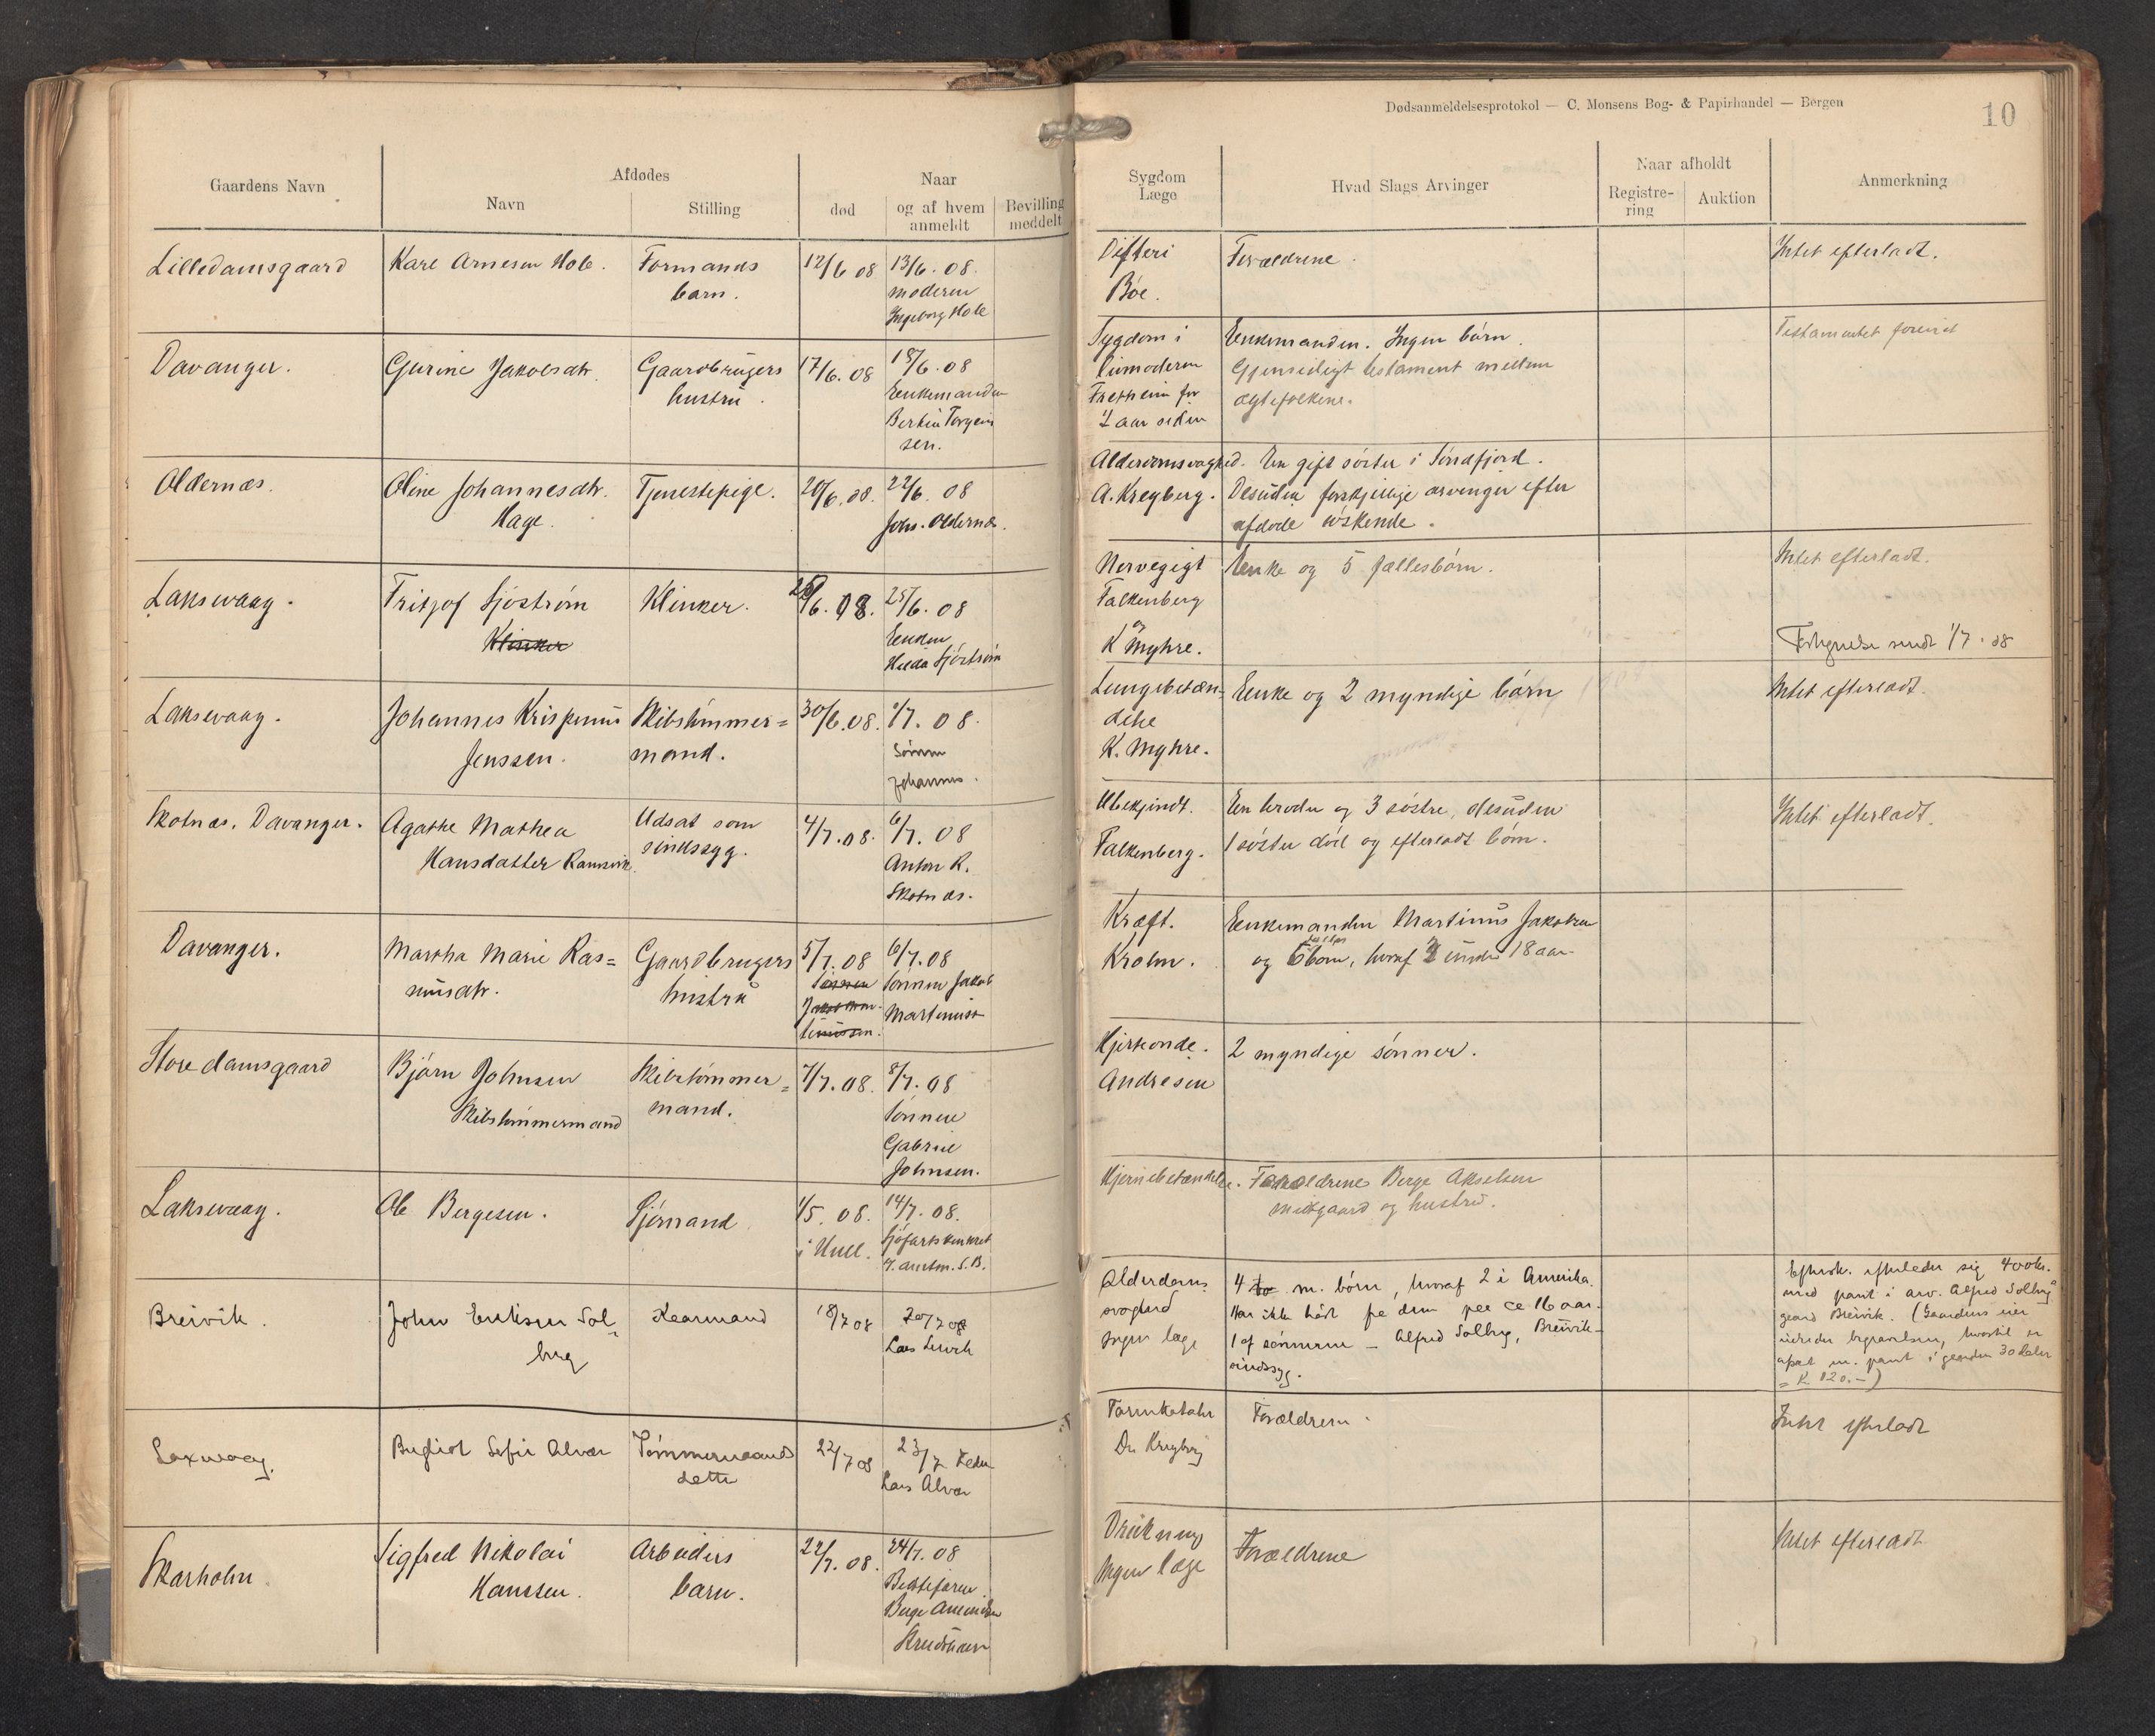 Dødsanmeldelsesprotokol — C. Monsens Bog- & Papirhandel — Bergen
10
Gaardens Navn
Afdødes
Navn
Stilling
død
Naar
og af hvem
anmeldt
Bevilling
meddelt
Sygdom
Læge
Hvad Slags Arvinger
Naar afholdt
Registre-
ring
Auktion
Anmerkning
Lilledamsgaard
Karl Arnesen Hole.
Formands
barn.
12/6 08
13/6. 08.
moderen
Ingeborg Hole
Difteri
Bøe.
Forældrene.
Intet efterladt.
Davanger.
Gurine Jakobsdtr.
Gaardbrugers
hustru.
17/6. 08
18/6. 08
Enkemanden
Sygdom i
livmoderen
for
½ aar siden
Enkemanden. Ingen børn.
Gjensidigt testament mellem
ægtefolkene.
Testamentet forevist
Oldernæs.
Oline Johannesdtr.
Hage.
Tjenestepige.
20/6. 08.
22/6. 08
Johs. Oldernæs.
Alderdomsvaghed.
A. Kreyberg.
En gift søster i Søndfjord.
Desuden forskjellige arvinger efter
afdøde søskende.
Laksevaag.
Fritjof Sjøstrøm
Klinker
Klinker.
/6. 08.
25/6. 08
Enken
Hilda Sjøstrøm
Nervegigt
Falkenberg
og
K Myhre.
Enke og 5 fællesbørn.
Intet efterladt.
sendt 1/7. 08
Laksevaag.
Johannes Krispinus
Jenssen.
Skibstømmer=
mand.
30/6. 08.
/7. 08.
Sønnen
Johannes.
Lungebetæn-
delse
K. Myhre.
Enke og 2 myndige børn
Intet efterladt.
Skotnæs, Davanger.
Agathe Mathea
Hansdatter Ramsvik.
Udsat som
sindssyg.
4/7. 08.
6/7. 08
Anton R.
Skotnæs.
Ubekjendt.
Falkenberg.
En broder og 3 søstre, desuden
1 søster død og efterladt børn.
Intet efterladt.
Davanger.
Martha Marie Ras=
musdtr.
Gaardbrugers
hustru
5/7. 08
6/7. 08
Sønnen Jakob
Martinus
Kræft.
Krohn.
Enkemanden Martinus Jakobsen
og 6 børn, hvoraf under 18 aar.
Store damsgaard
Bjørn Johnsen
Skibstømmermand
Skibstømmer=
mand.
7/7. 08.
8/7. 08
Sønnen
Gabriel
Johnsen.
Hjerteonde.
Andresen
2 myndige sønner.
Laksevaag.
Ole Bergesen.
Sjømand
1/5. 08.
i Hull.
14/7. 08.
Sjøfartskontoret
Hjernebetændelse.
Forældrene Berge Akselsen
Midgaard og hustru.
Breivik.
John Eriksen Sol-
berg
Kaarmand
18/7 08
20/7 08
Lars Leirvik
Alderdoms
svaghed
Ingen læge
4 m. børn, hvoraf 2 i Amerika.
Har ikke hørt fra dem paa ca 16 aar.
1 af sønnerne – Alfred Solberg, Breivik –
sindssyg.
efterleder sig 400 kr.
med pant i arv. Alfred Solbergs
gaard Breivik. (Gaardens eier
begravelsen, hvortil er
m. pant i gaarden 30 daler
= K. 120.–)
Laxevaag.
Bergliot Sofie Alvær
Tømmermands
datter
22/7 08
23/7
Lars Alvær
Tarmkatahr
Dr Kreyberg
Forældrene.
Intet efterladt
Skarholm.
Sigfred Nikolai
Hanssen.
Arbeiders
barn.
22/7. 08.
24/7. 08
Bestefaren
Berge
Drukning
Ingen læge
Forældrene
Intet efterladt